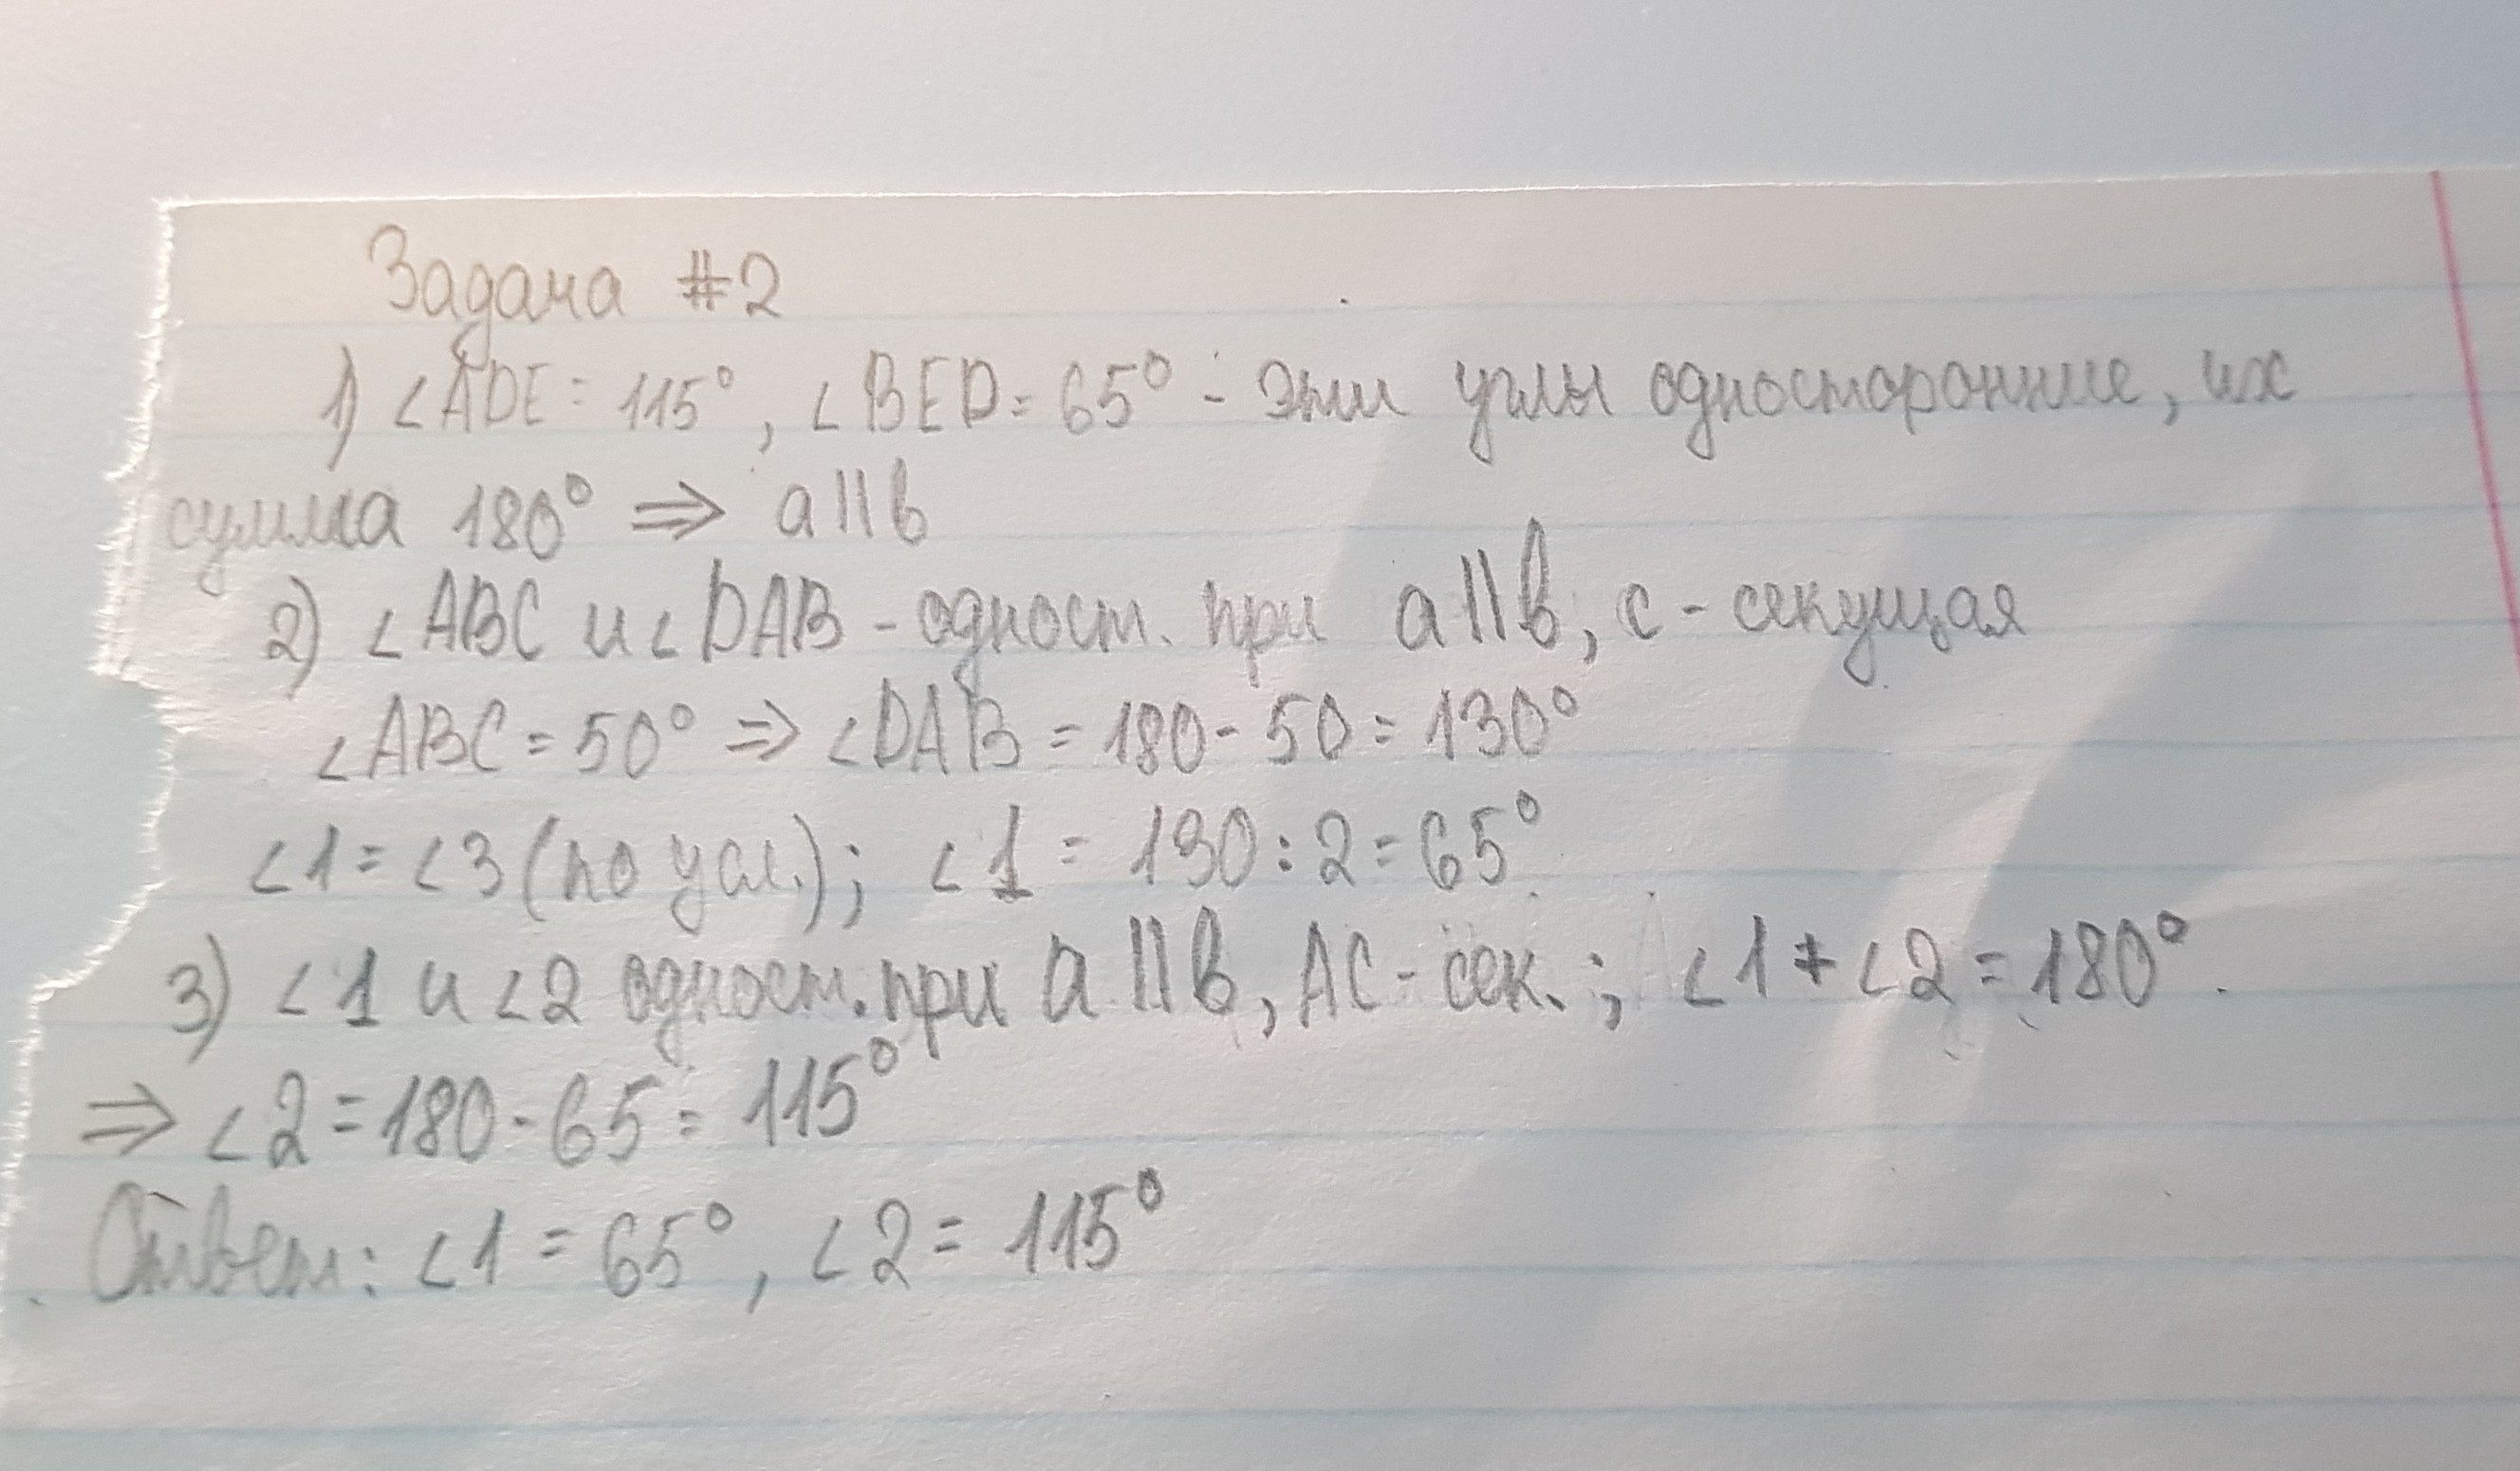 Задача #2
1) ∠ADE = 115°, ∠BED = 65° - эти углы односторонние, их
сумма 180° ⇒ a||b
2) ∠ABC и ∠DAB - одност. при a||b, c - секущая
∠ABC = 50° ⇒ ∠DAB = 180 - 50 = 130°
∠1 = ∠3 (по усл.); ∠1 = 130 : 2 = 65°
3) ∠1 и ∠2 одност. при a || b, AC - сек.; ∠1 + ∠2 = 180°.
⇒ ∠2 = 180 - 65 = 115°
Ответ: ∠1 = 65°, ∠2 = 115°